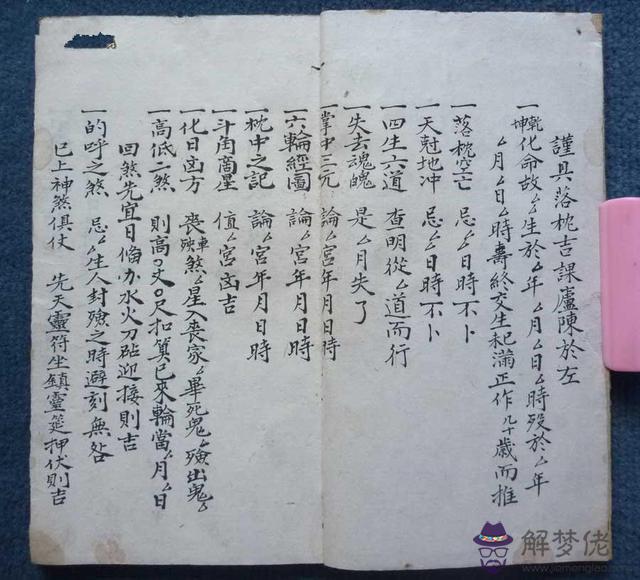 謹具落枕吉課廬陳於左
一乾坤化命故厶厶生於厶年厶月厶日厶時歿於厶年
厶月厶日厶時壽終交生杞滿正作几十歲而推
一落枕空亡 忌厶日時不卜
一天尅地冲 忌厶日時不卜
一四生六道 查明從厶道而行
一失去魂魄 是厶月失了
一掌中三元 論厶宮年月日時
一六輪經圖 論厶宮年月日時
一枕中之記 論厶宮年月日時
一斗角商星 值厶宮凶吉
一化日凶方 喪車殃煞厶星入喪家厶畢死鬼厶殮出鬼厶
一高低二煞 則高〇丈〇尺扣算已來輪當厶月厶日
回煞先宜日俻办水火刀砧迎接則吉
一的呼之煞 忌厶生人封殮之時避刻無咎
已上神煞俱仗 先天靈符坐鎮靈筵押伏則吉
解梦佬
www.jiemenglao.com